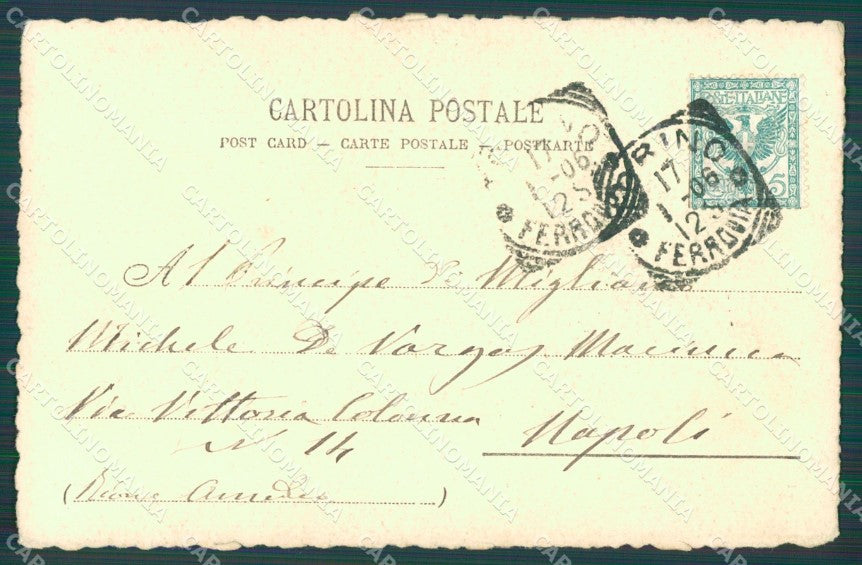 CARTOLINA POSTALE
POST CARD — CARTE POSTALE — POSTKARTE
POSTE ITALIANE
5
TORINO
17
1-06
12 S
FERROVIA
Al Principe di Migliano
Michele De Vargas Macciucca
Via Vittoria Colonna
N 14
Napoli
CARTOLINOMANIA